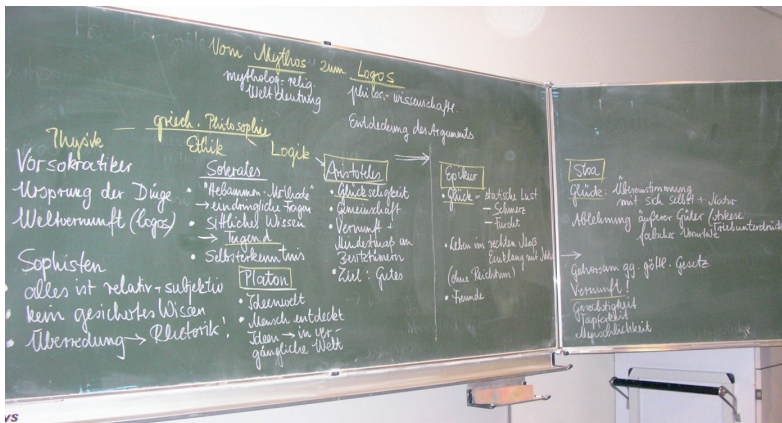 Vom Mythos zum Logos
mytholog.-relig.
Weltdeutung
philos.-wissenschaftl.
Entdeckung des Arguments
griech. Philosophie
Physik
Ethik
Logik
Vorsokratiker
Ursprung der Dinge
Weltvernunft (logos)
Sophisten
• alles ist relativ + subjektiv
• kein gesichertes Wissen
• Überredung → Rhetorik!
Sokrates
• "Hebammen-Methode"
→ eindringliche Fragen
• sittliches Wissen
→ Tugend
• Selbsterkenntnis
Platon
• Ideenwelt
• Mensch entdeckt
Ideen → in ver-
gängliche Welt
Aristoteles
• Glückseligkeit
• Gemeinschaft
• Vernunft +
Mindestmaß an
Besitztümern
• Ziel: Gutes
Epikur
• Glück = statische Lust
– Schmerz
– Furcht
• Leben im rechten Maß
Einklang mit
(ohne Reichtum)
• Freunde
Stoa
Glück: Übereinstimmung
mit sich selbst + Natur
Ablehnung äußerer Güter
falscher Vorurteile Triebunterdrück
→ Gehorsam gg. göttl. Gesetz
Vernunft!
Gerechtigkeit
Tapferkeit
Menschlichkeit
ys